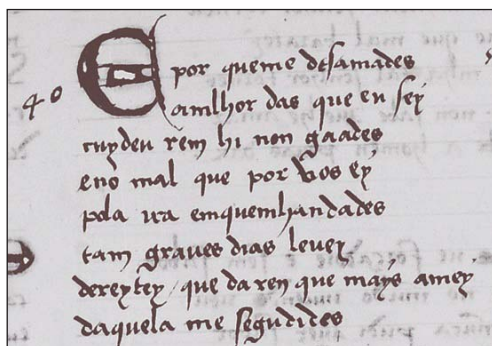 4º
E por queme desamades
amilhor das que eu sey
cuydeu rem hi non gaades
eno mal que por vos ey
pola ira emquemhandades
tam graves dias levey
dereytey / que da ren que mays amey
daquela me segudides